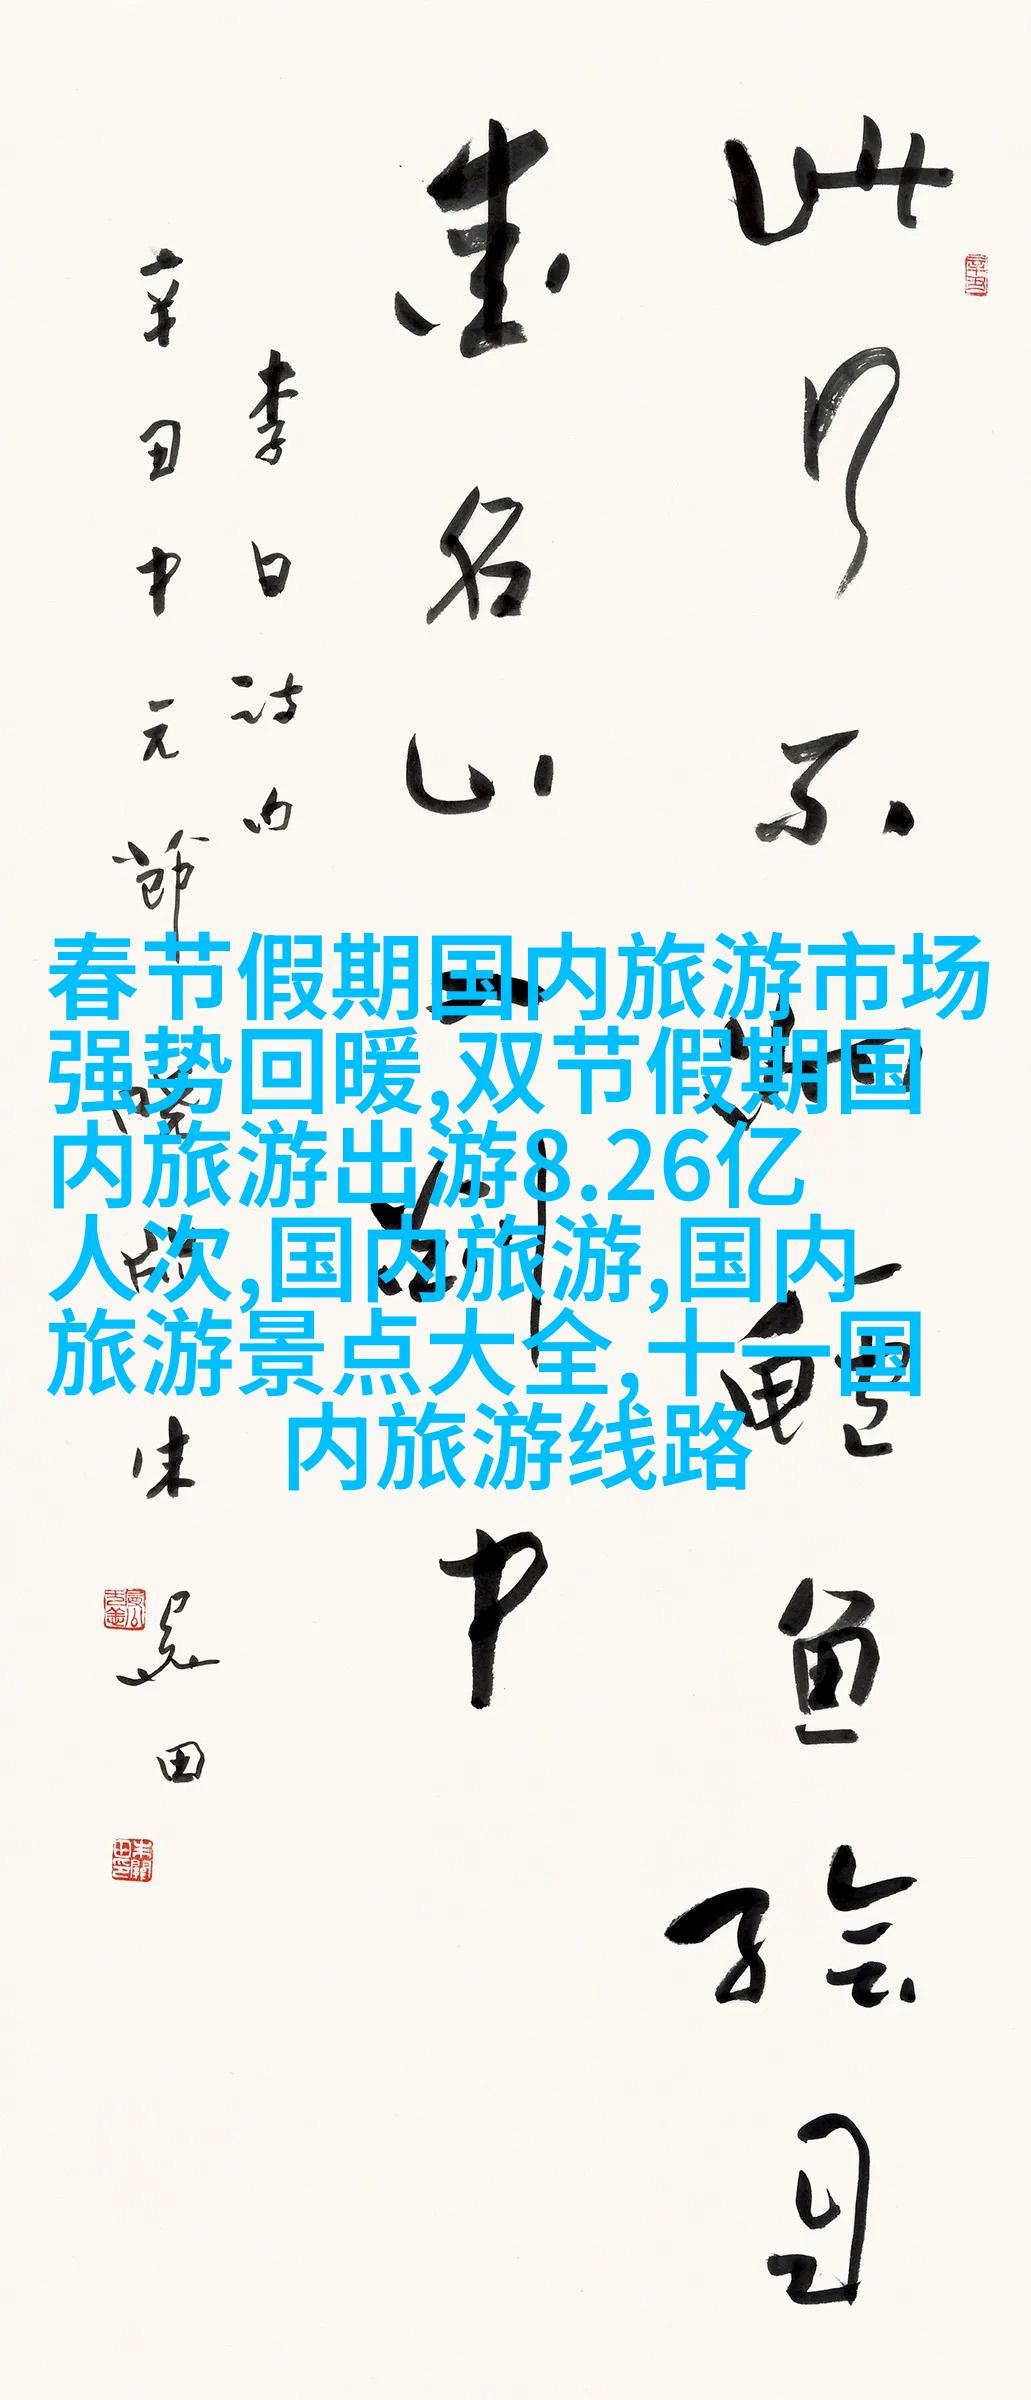 此行不為鱸魚自
愛名山入剡中
李白詩句
辛丑中元節朱關田
春节假期国内旅游市场
强势回暖,双节假期国
内旅游出游8.26亿
人次,国内旅游,国内
旅游景点大全,十一国
内旅游线路